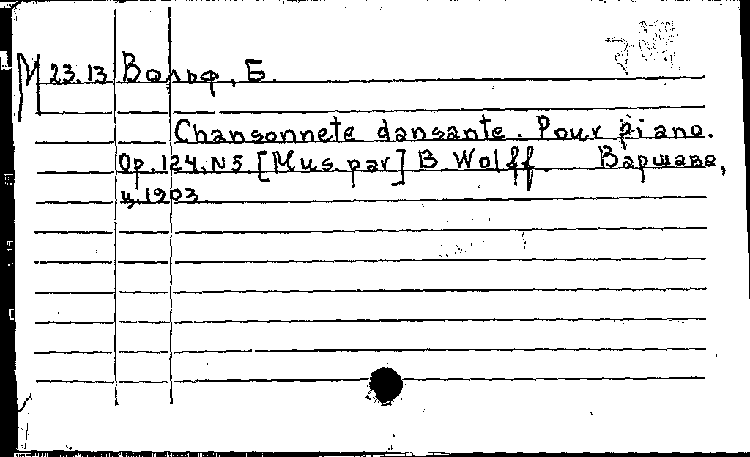 М 23.13 Вольф, Б.
Chansonnete dansante. Pour piano.
Op. 124. N 5 [Mus. par] B Wolff Варшава,
ц. 1903